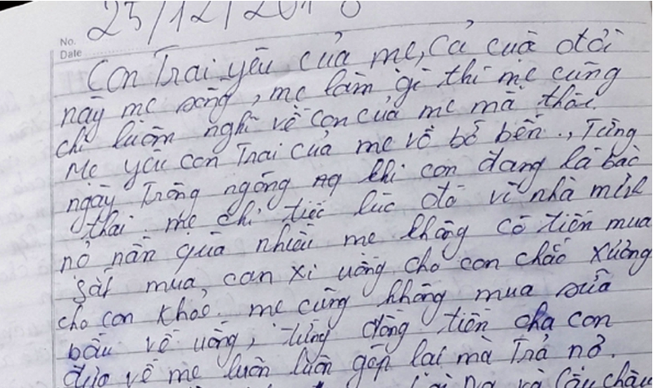 No.
Date
25/12/201
Con Trai yêu của mẹ, Cả cuộc đời
này mẹ sống, mẹ làm gì thì mẹ cũng
chỉ luôn nghĩ về con của mẹ mà thôi
Mẹ yêu con Trai của mẹ vô bờ bến., Từng
ngày Trông ngóng khi con đang là bào
thai. mẹ chỉ tiếc lúc đó vì nhà mình
nợ nần quá nhiều mẹ không có tiền mua
sắt mua can xi uống cho con chắc xương
cho con khỏe. mẹ cũng không mua sữa
bầu về uống, từng đồng tiền cha con
đưa về mẹ luôn luôn góp lại mà Trả nợ.
và Cậu cháu